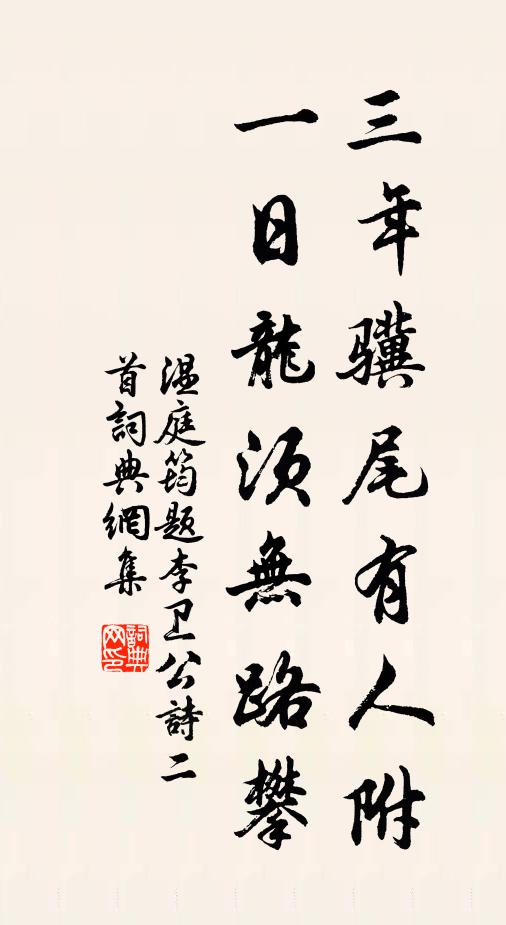 三年骥尾有人附
一日龍须無路攀
温庭筠题李卫公詩二
首詞典網集
詞典
网印